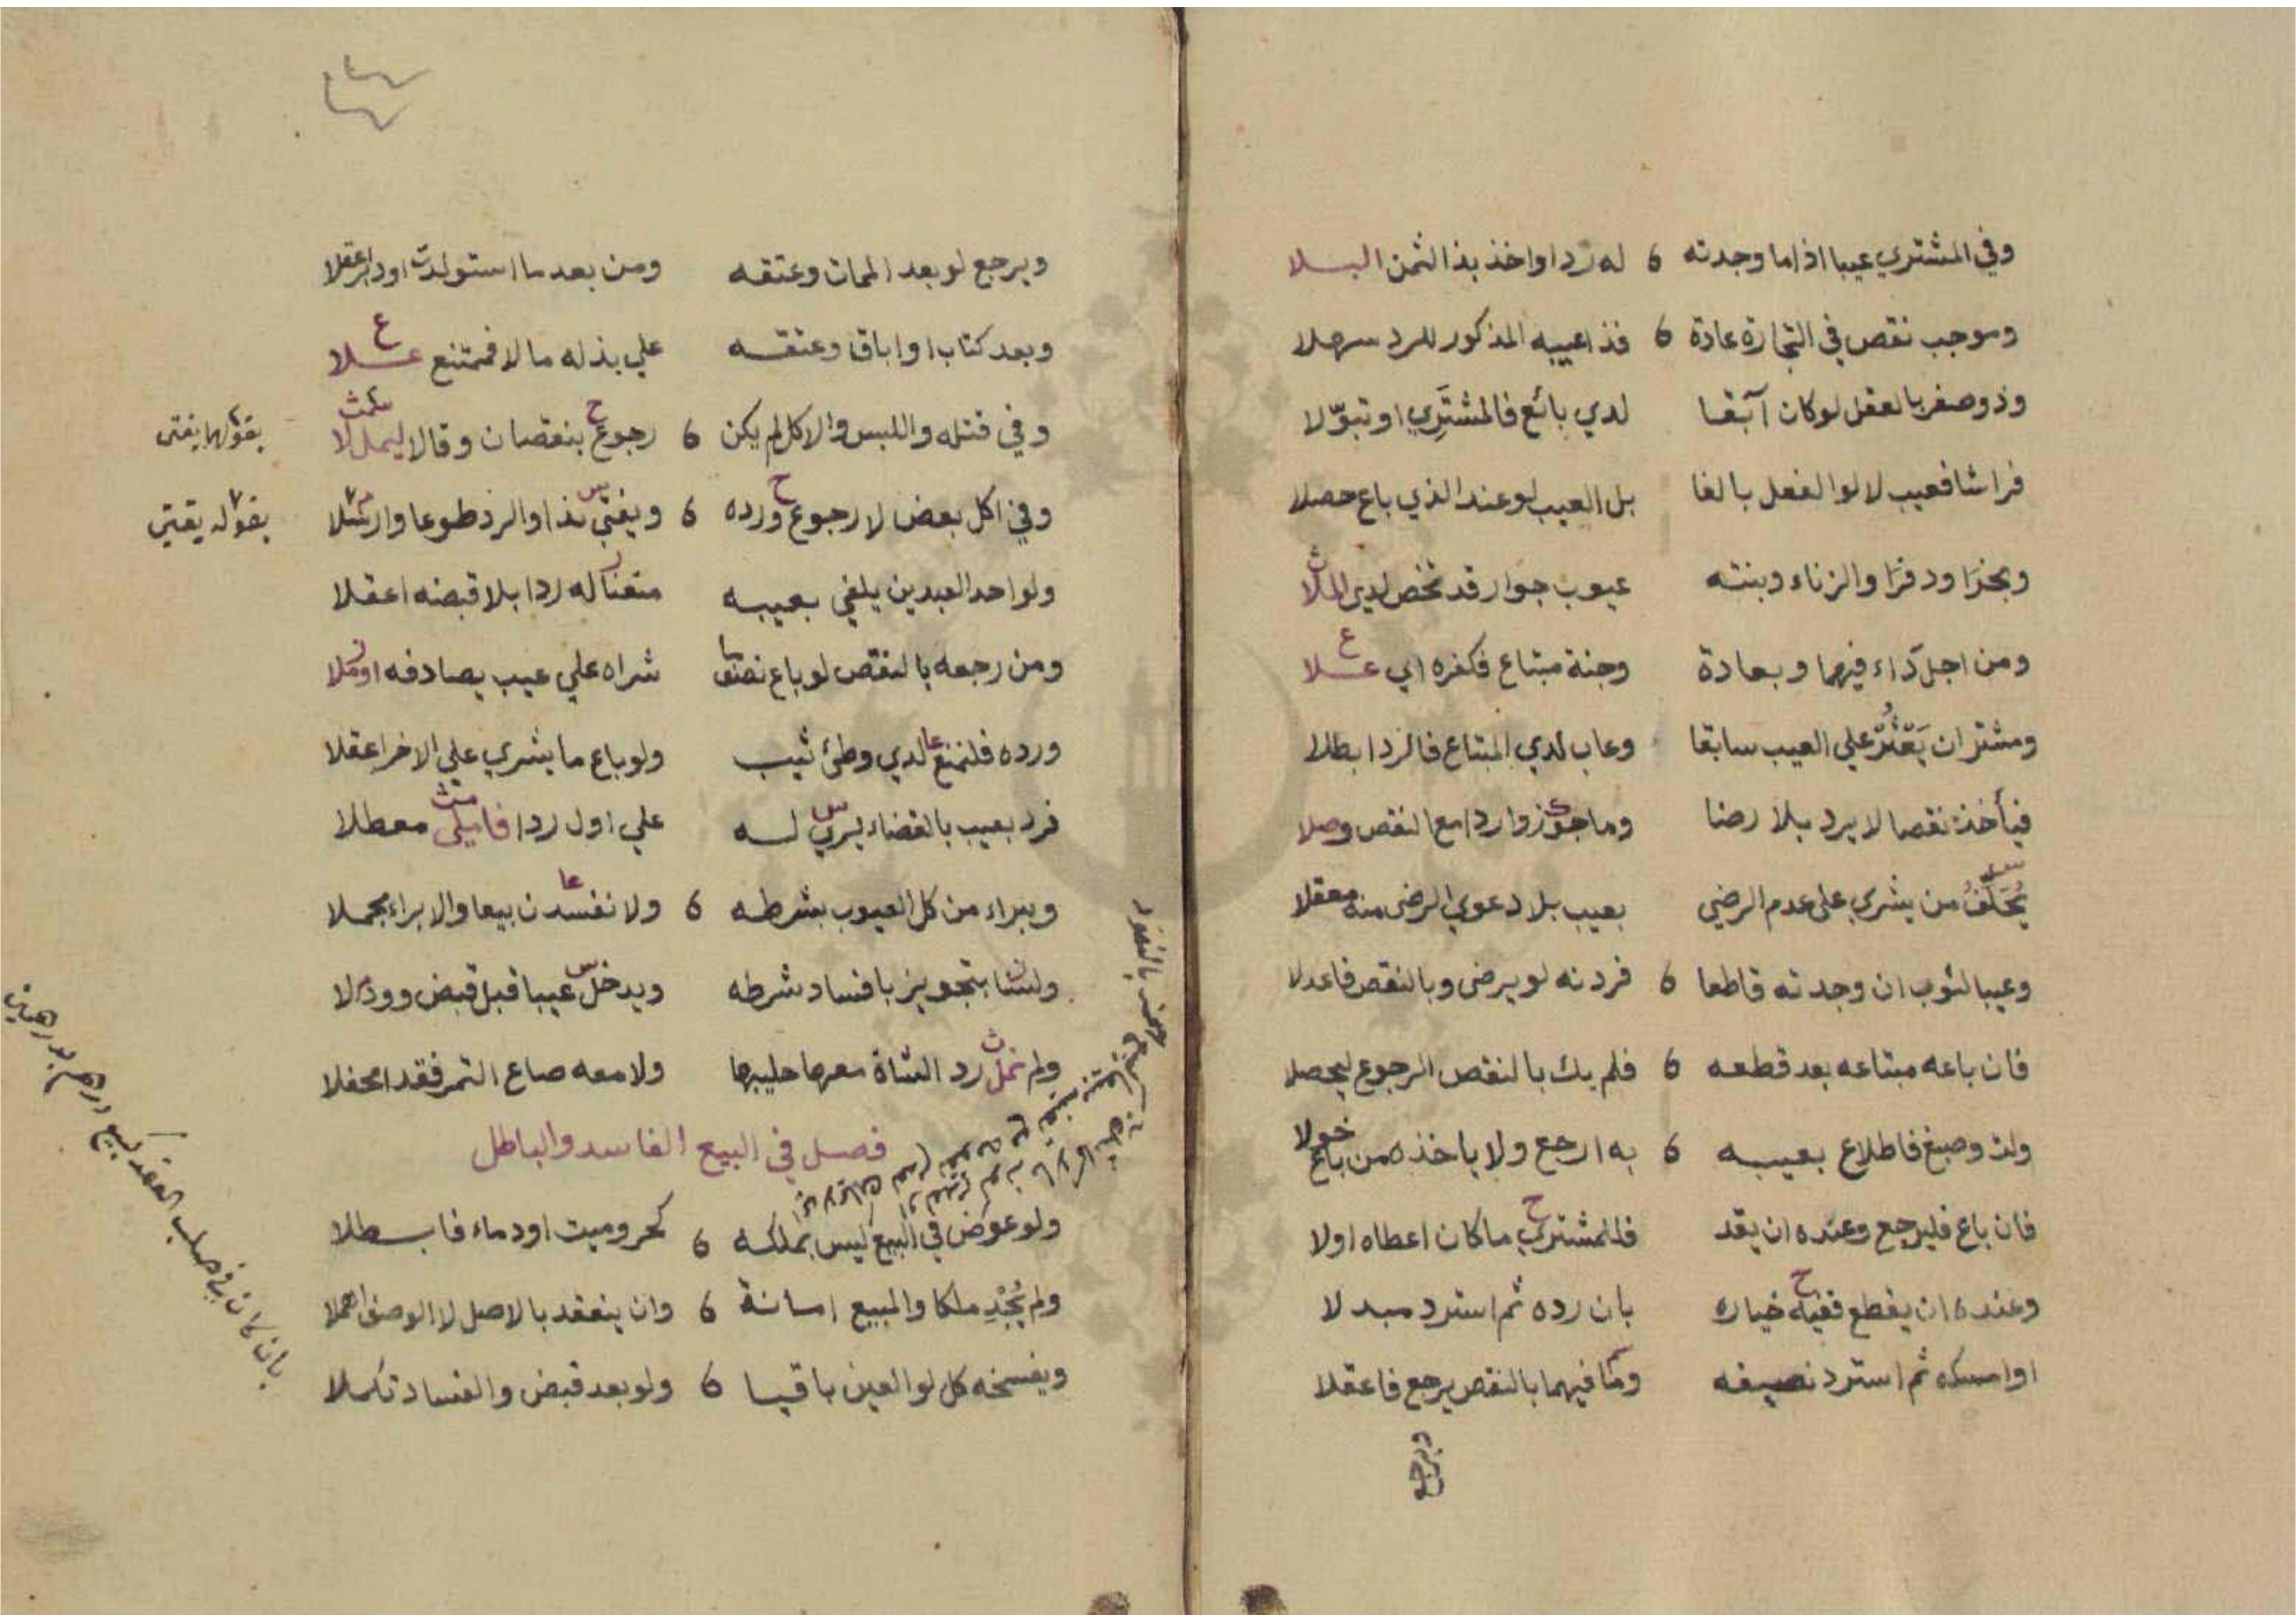 وفي المشتري عيبا اذا ما وجدته 6 له رد او اخذ بذا الثمن البسلا
وموجب نقص في التجارة عادة 6 فذا عيبه المذكور للرد سهلا
وذو صغر بالعقل لو كان آبقا لدي بائع فالمشتري او تبولا
فراشا فعيب لا لوالفعل بالغا بل العيب لو عند الذي باع حصلا
وبخرا ودفرا والزناء وبنته عيوب جوار قد تخص لدي الملا
ومن اجل داء فيهما وبعادة وجنة مبتاع فكفره اي علا
ومشتر ان يعثر علي العيب سابقا وعاب لدي المبتاع فالرد ابطلا
فيأخذ نقصا لا يرد بلا رضا وما جوزوا ردا مع النقص وصلا
يحلف من يشري على عدم الرضي بعيب بلا دعوي الرضى منه معقلا
وعيبا لثوب ان وجدته قاطعا 6 فردنه لو يرضى وبالنقص فاعدلا
فان باعه مبتاعه بعد قطعه 6 فلم يك بالنقص الرجوع ليحصلا
ولت وصبغ فاطلاع بعيبه 6 به ارجع ولا ياخذه من باع خولا
فان باع فليرجع وعنده ان يقد فللمشتري ما كان اعطاه اولا
وعنده ان يقطع ففيه خياره بان رده ثم استرد مبدلا
او امسكه ثم استرد نصيفه وما فيهما بالنقص يرجع فاعقلا
ويرجع
ويرجع لو بعد الممات وعتقه ومن بعد ما استولدت او دبر اعقلا
وبعد كتاب او اباق وعتقه علي بذله مالا فممتنع علا
وفي قتله واللبس والاكل لم يكن 6 رجوع بنقصان وقالا ليملا
بقولهما يفتى
وفي اكل بعض لا رجوع ورده 6 ويفتي بذا والرد طوعا وارسلا
بقوله يفتى
ولو احد العبدين يلفي بعيبه متعنا له ردا بلا قبضه اعقلا
ومن رجعه بالنقص لو باع نصفها شراه علي عيب يصادفه او
ورده فلنمنع لدي وطئ ثيب ولو باع ما يشري علي الاخر اعقلا
فرد بعيب بالقضاء يري له علي اول ردا معطلا
وبراء من كل العيوب بشرطه 6 ولا نفسدن بيعا والابراء مجملا
ولسنا بتجويز بافساد شرطه ويدخل عيبا قبل قبض
ولم نمل رد الشاة معها حليبها ولا معه صاع التمر فقدا محفلا
فصل في البيع الفاسد والباطل
ولو عوض في البيع ليس بملكه 6 كحر وميت او دماء فابطلا
ولم يجد ملكا والمبيع امانة 6 وان ينعقد بالاصل لا الوصف اهملا
ويفسخه كل لو العين باقيا 6 ولو بعد قبض والفساد تكملا
بان كان في صلب العقد كبيع درهم بدرهمين